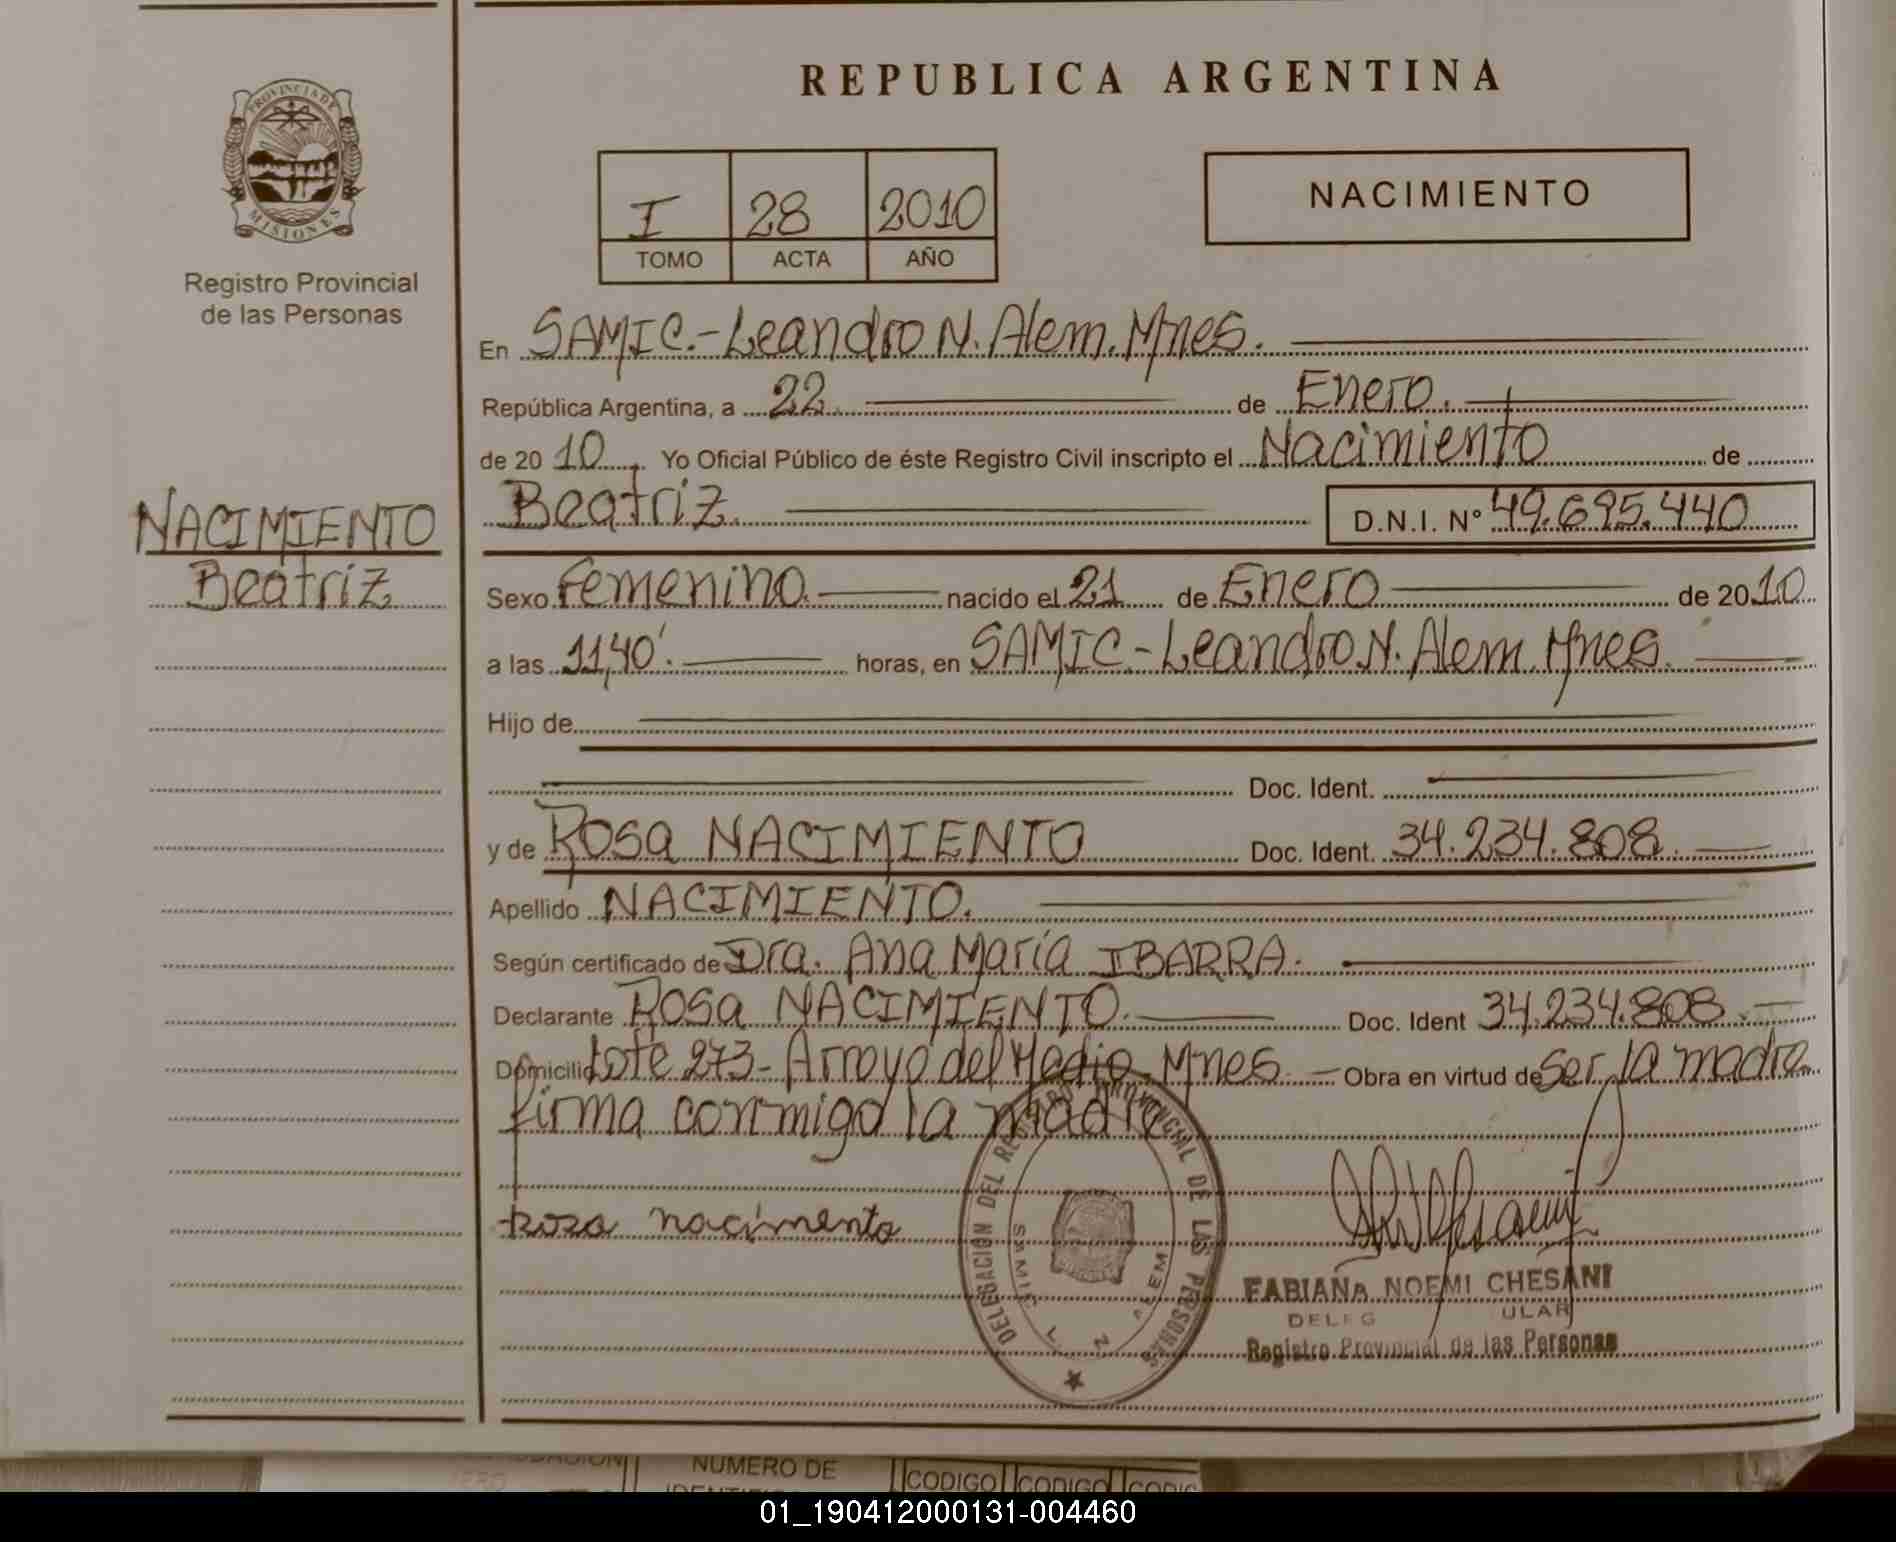 PROVINCIA DE
MISIONES
Registro Provincial
de las Personas
NACIMIENTO
Beatriz
REPUBLICA ARGENTINA
I 28 2010
TOMO ACTA AÑO
NACIMIENTO
En SAMIC.-Leandro N. Alem. Mnes.
República Argentina, a 22. de Enero.
de 20 10 Yo Oficial Público de éste Registro Civil inscripto el Nacimiento de
Beatriz. D.N.I. N° 49.695.440
Sexo Femenino. nacido el 21 de Enero de 20 10
a las 11,40'. horas, en SAMIC-Leandro N. Alem. Mnes.
Hijo de
Doc. Ident.
y de Rosa NACIMIENTO Doc. Ident. 34.234.808.
Apellido NACIMIENTO.
Según certificado de Dra. Ana María IBARRA.
Declarante Rosa NACIMIENTO. Doc. Ident 34.234.808.
Domicilio Lote 273- Arroyo del Medio. Mnes. Obra en virtud de Ser la madre
firma conmigo la madre
Rosa nacimento
DELEGACION DEL REGISTRO PROVINCIAL DE LAS PERSONAS
SAMIC L. N. ALEM
FABIANA NOEMI CHESANI
Registro Provincial de las Personas
NUMERO DE
CODIGO CODIGO
01_190412000131-004460